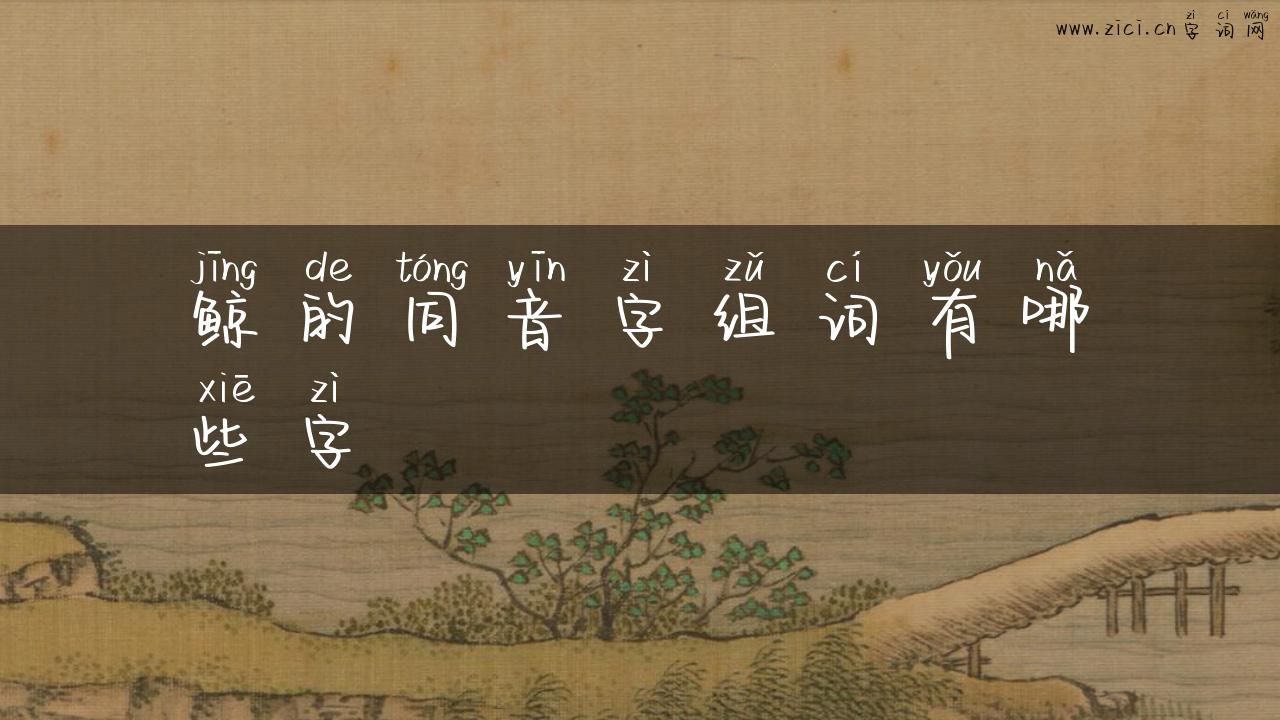 zì cí wǎng
www.zici.cn 字词网
jīng de tóng yīn zì zǔ cí yǒu nǎ
鲸的同音字组词有哪
xiē zì
些字